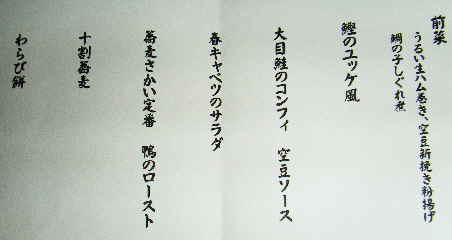 前菜
うるい生ハム巻き、空豆新挽き粉揚げ
鯛の子しぐれ煮
鰹のユッケ風
大目鮭のコンフィ 空豆ソース
春キャベツのサラダ
蕎麦さかい定番 鴨のロースト
十割蕎麦
わらび餅